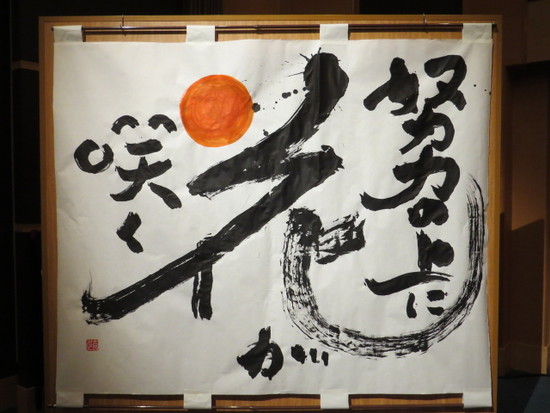 努力の上に
花が
咲く